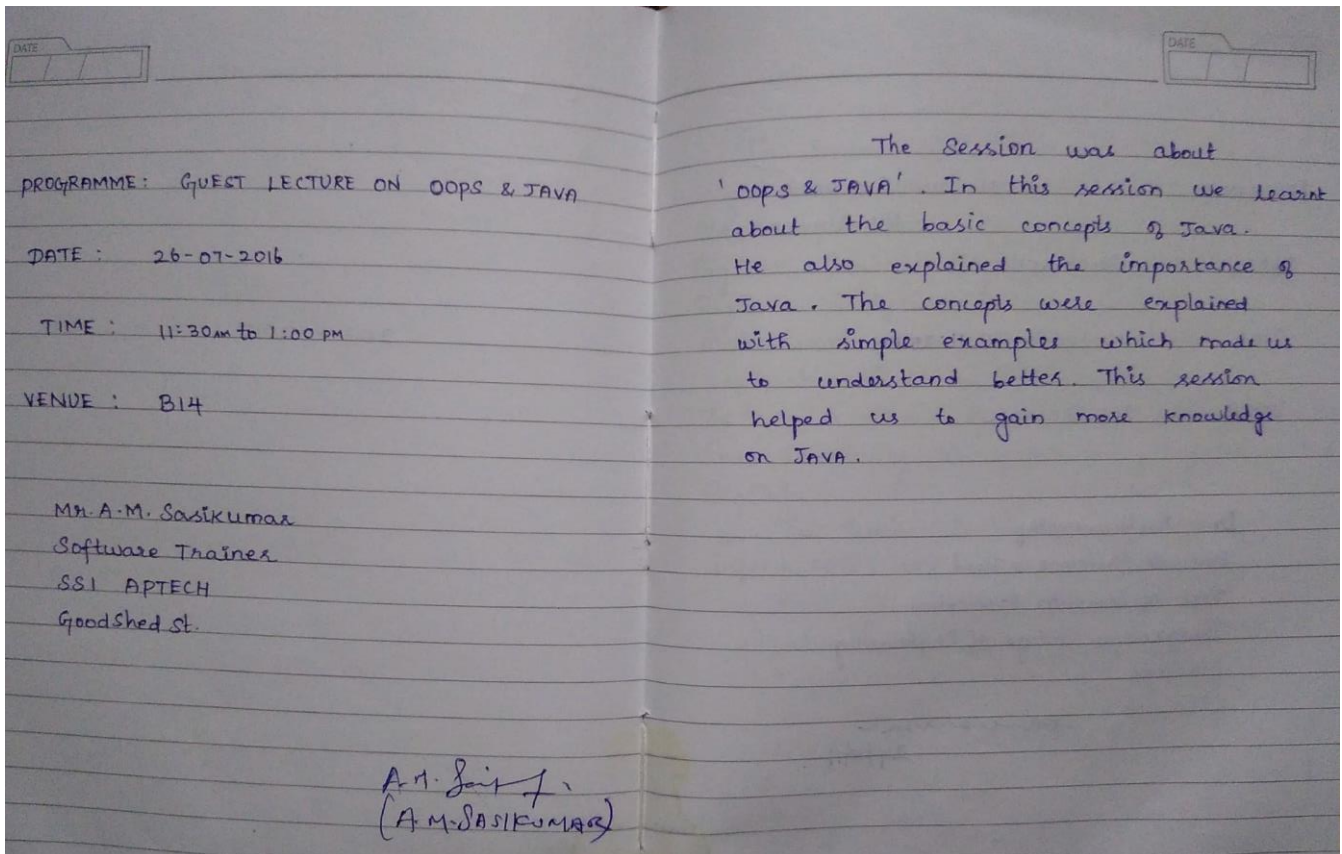 DATE
PROGRAMME: GUEST LECTURE ON OOPS & JAVA
DATE : 26-07-2016
TIME : 11:30 AM to 1:00 PM
VENUE : B14
Mr. A.M. Sasikumar
Software Trainer
SSI APTECH
GoodShed St.
A.M.
(A.M. SASIKUMAR)
DATE
The Session was about
'OOPS & JAVA'. In this session we learnt
about the basic concepts of Java.
He also explained the importance of
Java. The concepts were explained
with simple examples which made us
to understand better. This session
helped us to gain more knowledge
on JAVA.